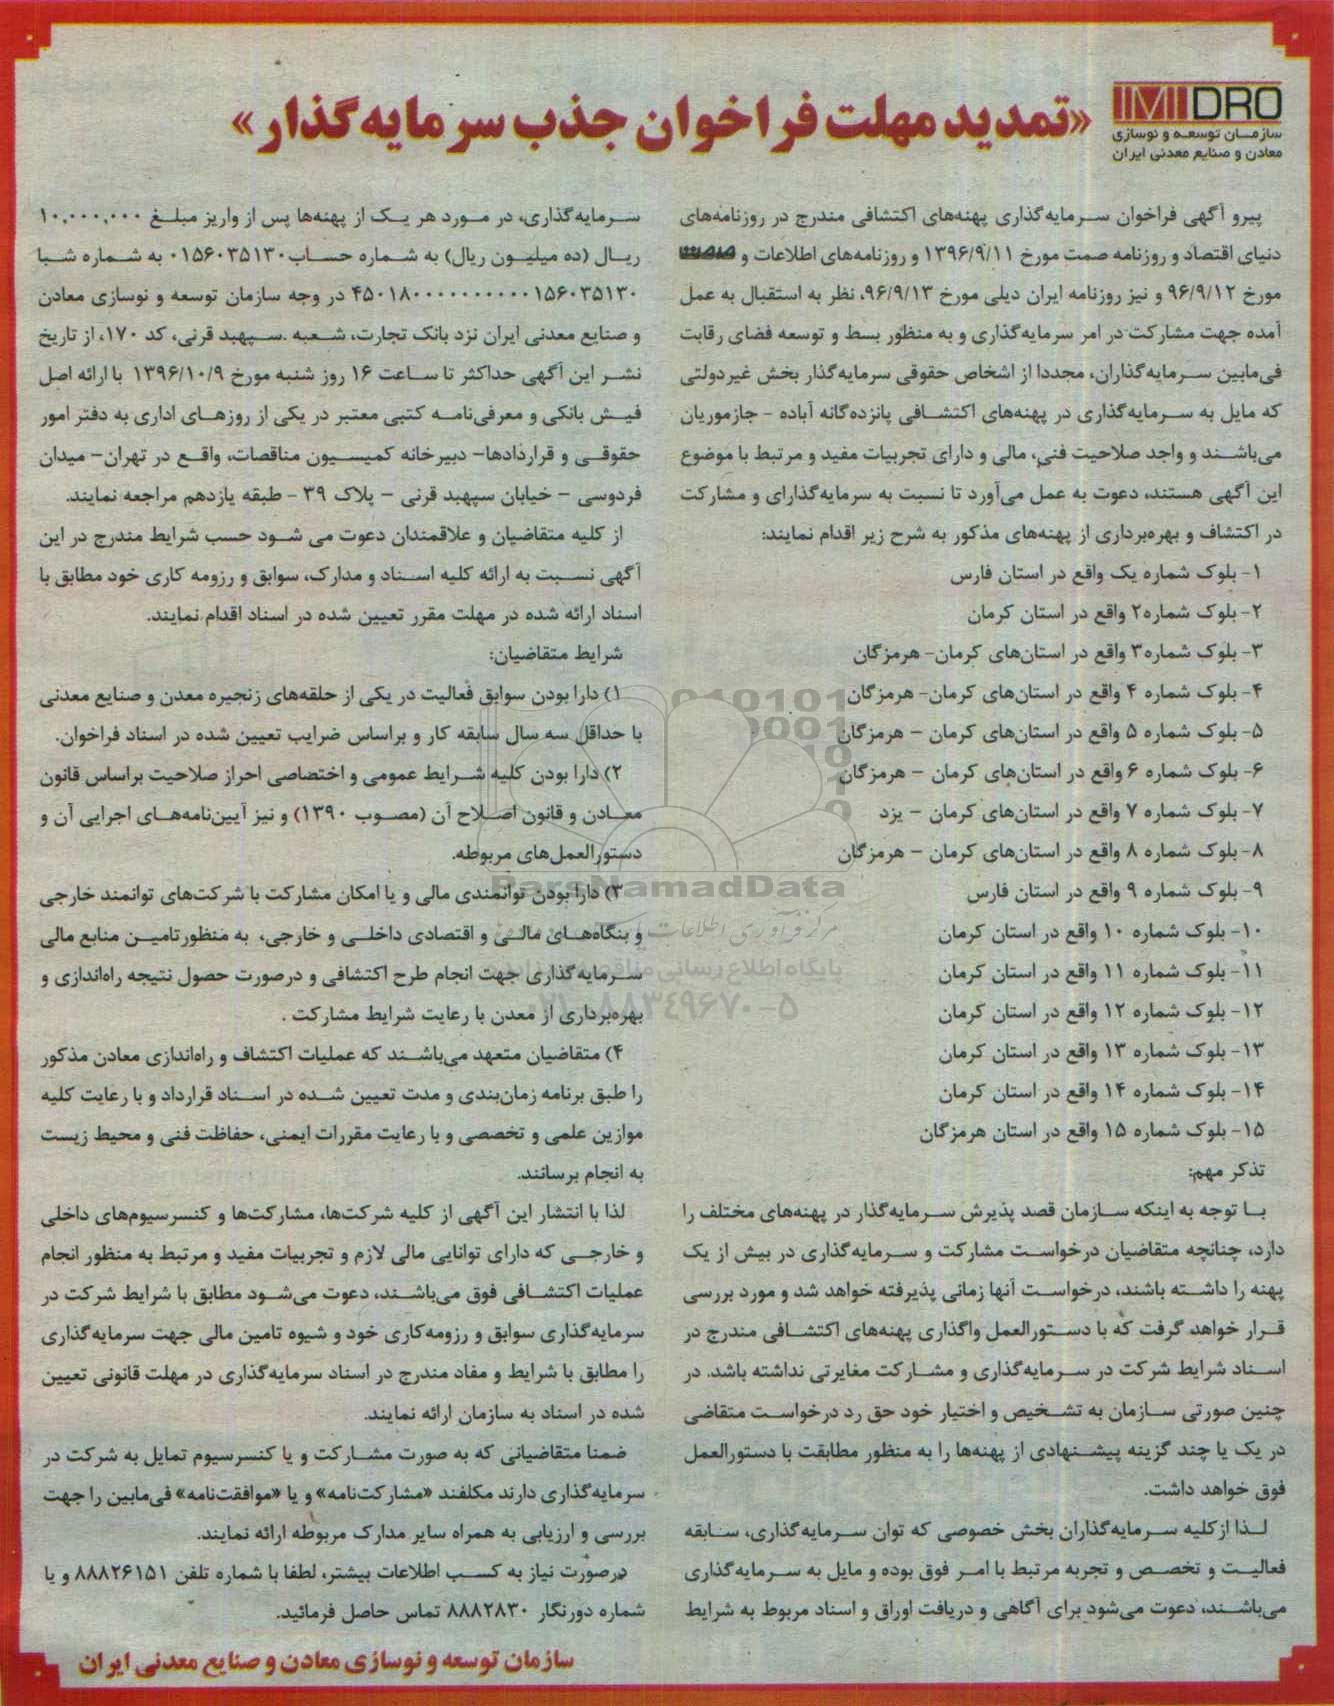 IMIDRO
سازمان توسعه و نوسازی
معادن و صنایع معدنی ایران
«تمدید مهلت فراخوان جذب سرمایه‌گذار»
پیرو آگهی فراخوان سرمایه‌گذاری پهنه‌های اکتشافی مندرج در روزنامه‌های
دنیای اقتصاد و روزنامه صمت مورخ ۱۳۹۶/۹/۱۱ و روزنامه‌های اطلاعات و صمت
مورخ ۹۶/۹/۱۲ و نیز روزنامه ایران دیلی مورخ ۹۶/۹/۱۳، نظر به استقبال به عمل
آمده جهت مشارکت در امر سرمایه‌گذاری و به منظور بسط و توسعه فضای رقابت
فی‌مابین سرمایه‌گذاران، مجددا از اشخاص حقوقی سرمایه‌گذار بخش غیردولتی
که مایل به سرمایه‌گذاری در پهنه‌های اکتشافی پانزده‌گانه آباده - جازموریان
می‌باشند و واجد صلاحیت فنی، مالی و دارای تجربیات مفید و مرتبط با موضوع
این آگهی هستند، دعوت به عمل می‌آورد تا نسبت به سرمایه‌گذارای و مشارکت
در اکتشاف و بهره‌برداری از پهنه‌های مذکور به شرح زیر اقدام نمایند:
۱- بلوک شماره یک واقع در استان فارس
۲- بلوک شماره۲ واقع در استان کرمان
۳- بلوک شماره۳ واقع در استان‌های کرمان- هرمزگان
۴- بلوک شماره ۴ واقع در استان‌های کرمان- هرمزگان
۵- بلوک شماره ۵ واقع در استان‌های کرمان - هرمزگان
۶- بلوک شماره ۶ واقع در استان‌های کرمان - هرمزگان
۷- بلوک شماره ۷ واقع در استان‌های کرمان - یزد
۸- بلوک شماره ۸ واقع در استان‌های کرمان - هرمزگان
۹- بلوک شماره ۹ واقع در استان فارس
۱۰- بلوک شماره ۱۰ واقع در استان کرمان
۱۱- بلوک شماره ۱۱ واقع در استان کرمان
۱۲- بلوک شماره ۱۲ واقع در استان کرمان
۱۳- بلوک شماره ۱۳ واقع در استان کرمان
۱۴- بلوک شماره ۱۴ واقع در استان کرمان
۱۵- بلوک شماره ۱۵ واقع در استان هرمزگان
تذکر مهم:
با توجه به اینکه سازمان قصد پذیرش سرمایه‌گذار در پهنه‌های مختلف را
دارد، چنانچه متقاضیان درخواست مشارکت و سرمایه‌گذاری در بیش از یک
پهنه را داشته باشند، درخواست آنها زمانی پذیرفته خواهد شد و مورد بررسی
قرار خواهد گرفت که با دستورالعمل واگذاری پهنه‌های اکتشافی مندرج در
اسناد شرایط شرکت در سرمایه‌گذاری و مشارکت مغایرتی نداشته باشد. در
چنین صورتی سازمان به تشخیص و اختیار خود حق رد درخواست متقاضی
در یک یا چند گزینه پیشنهادی از پهنه‌ها را به منظور مطابقت با دستورالعمل
فوق خواهد داشت.
لذا از کلیه سرمایه‌گذاران بخش خصوصی که توان سرمایه‌گذاری، سابقه
فعالیت و تخصص و تجربه مرتبط با امر فوق بوده و مایل به سرمایه‌گذاری
می‌باشند، دعوت می‌شود برای آگاهی و دریافت اوراق و اسناد مربوط به شرایط
سرمایه‌گذاری، در مورد هر یک از پهنه‌ها پس از واریز مبلغ ۱۰,۰۰۰,۰۰۰
ریال (ده میلیون ریال) به شماره حساب۰۱۵۶۰۳۵۱۳۰ به شماره شبا
۴۵۰۱۸۰۰۰۰۰۰۰۰۰۰۱۵۶۰۳۵۱۳۰ در وجه سازمان توسعه و نوسازی معادن
و صنایع معدنی ایران نزد بانک تجارت، شعبه سپهبد قرنی، کد ۱۷۰، از تاریخ
نشر این آگهی حداکثر تا ساعت ۱۶ روز شنبه مورخ ۱۳۹۶/۱۰/۹ با ارائه اصل
فیش بانکی و معرفی‌نامه کتبی معتبر در یکی از روزهای اداری به دفتر امور
حقوقی و قراردادها- دبیرخانه کمیسیون مناقصات، واقع در تهران- میدان
فردوسی - خیابان سپهبد قرنی - پلاک ۳۹ - طبقه یازدهم مراجعه نمایند.
از کلیه متقاضیان و علاقمندان دعوت می شود حسب شرایط مندرج در این
آگهی نسبت به ارائه کلیه اسناد و مدارک، سوابق و رزومه کاری خود مطابق با
اسناد ارائه شده در مهلت مقرر تعیین شده در اسناد اقدام نمایند.
شرایط متقاضیان:
۱) دارا بودن سوابق فعالیت در یکی از حلقه‌های زنجیره معدن و صنایع معدنی
با حداقل سه سال سابقه کار و براساس ضرایب تعیین شده در اسناد فراخوان.
۲) دارا بودن کلیه شرایط عمومی و اختصاصی احراز صلاحیت براساس قانون
معادن و قانون اصلاح آن (مصوب ۱۳۹۰) و نیز آیین‌نامه‌های اجرایی آن و
دستورالعمل‌های مربوطه.
۳) دارا بودن توانمندی مالی و یا امکان مشارکت با شرکت‌های توانمند خارجی
و بنگاه‌های مالی و اقتصادی داخلی و خارجی، به منظور تامین منابع مالی
سرمایه‌گذاری جهت انجام طرح اکتشافی و درصورت حصول نتیجه راه‌اندازی و
بهره‌برداری از معدن با رعایت شرایط مشارکت .
۴) متقاضیان متعهد می‌باشند که عملیات اکتشاف و راه‌اندازی معادن مذکور
را طبق برنامه زمان‌بندی و مدت تعیین شده در اسناد قرارداد و با رعایت کلیه
موازین علمی و تخصصی و با رعایت مقررات ایمنی، حفاظت فنی و محیط زیست
به انجام برسانند.
لذا با انتشار این آگهی از کلیه شرکت‌ها، مشارکت‌ها و کنسرسیوم‌های داخلی
و خارجی که دارای توانایی مالی لازم و تجربیات مفید و مرتبط به منظور انجام
عملیات اکتشافی فوق می‌باشند، دعوت می‌شود مطابق با شرایط شرکت در
سرمایه‌گذاری سوابق و رزومه‌کاری خود و شیوه تامین مالی جهت سرمایه‌گذاری
را مطابق با شرایط و مفاد مندرج در اسناد سرمایه‌گذاری در مهلت قانونی تعیین
شده در اسناد به سازمان ارائه نمایند.
ضمنا متقاضیانی که به صورت مشارکت و یا کنسرسیوم تمایل به شرکت در
سرمایه‌گذاری دارند مکلفند «مشارکت‌نامه» و یا «موافقت‌نامه» فی‌مابین را جهت
بررسی و ارزیابی به همراه سایر مدارک مربوطه ارائه نمایند.
درصورت نیاز به کسب اطلاعات بیشتر، لطفا با شماره تلفن ۸۸۸۲۶۱۵۱ و یا
شماره دورنگار ۸۸۸۲۸۳۰ تماس حاصل فرمائید.
سازمان توسعه و نوسازی معادن و صنایع معدنی ایران
ParsNamadData
۰۲۱-۸۸۳۴۹۶۷۰-۵